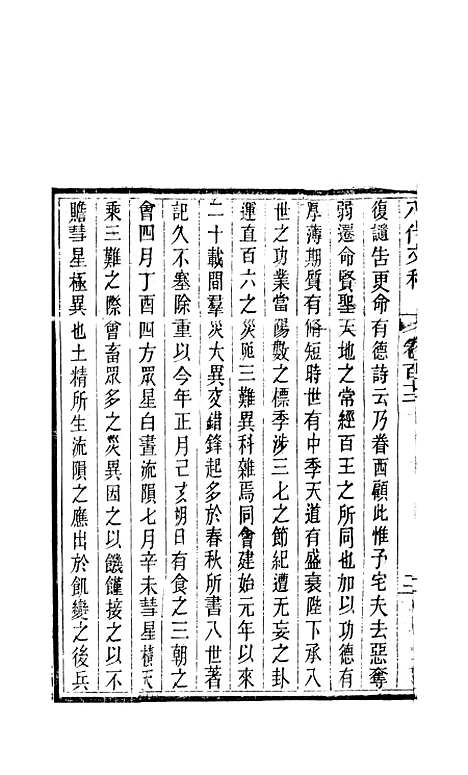 復譴告更命有德詩云乃眷西顧此惟予宅夫去惡奪
弱遷命賢聖天地之常經百王之所同也加以功德有
厚薄期質有脩短時世有中季天道有盛衰陛下承八
世之功業當陽數之標季涉三七之節紀遭无妄之卦
運直百六之災阨三難異科雜焉同會建始元年以來
二十載間羣災大異交錯鋒起多於春秋所書八世著
記久不塞除重以今年正月己亥朔日有食之三朝之
會四月丁酉四方眾星白晝流隕七月辛未彗星橫天
乘三難之際會畜眾多之災異因之以饑饉接之以不
贍彗星極異也土精所生流隕之應出於飢變之後兵